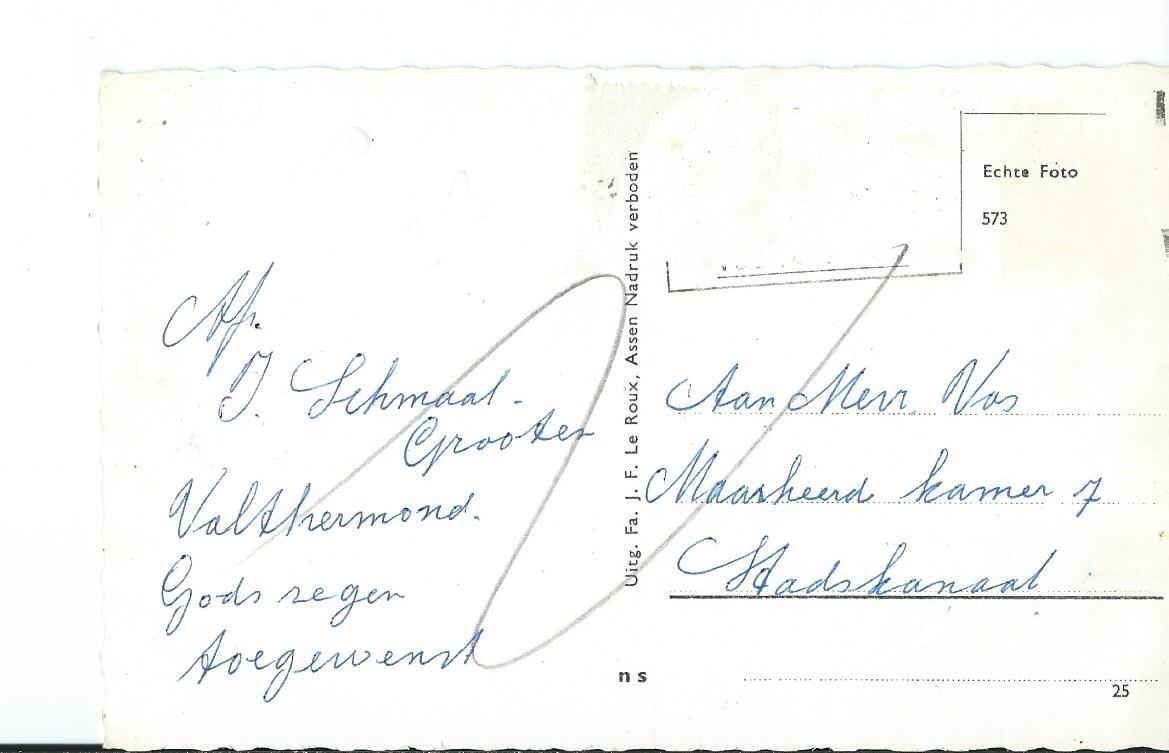 Af.
J. Schmaal-
Grooten
Valthermond.
Gods zegen
toegewenst
Uitg. Fa. J. F. Le Roux, Assen Nadruk verboden
Echte Foto
573
Aan Mevr. Vos
Maarsheerd kamer 7
Stadskanaal
ns
25